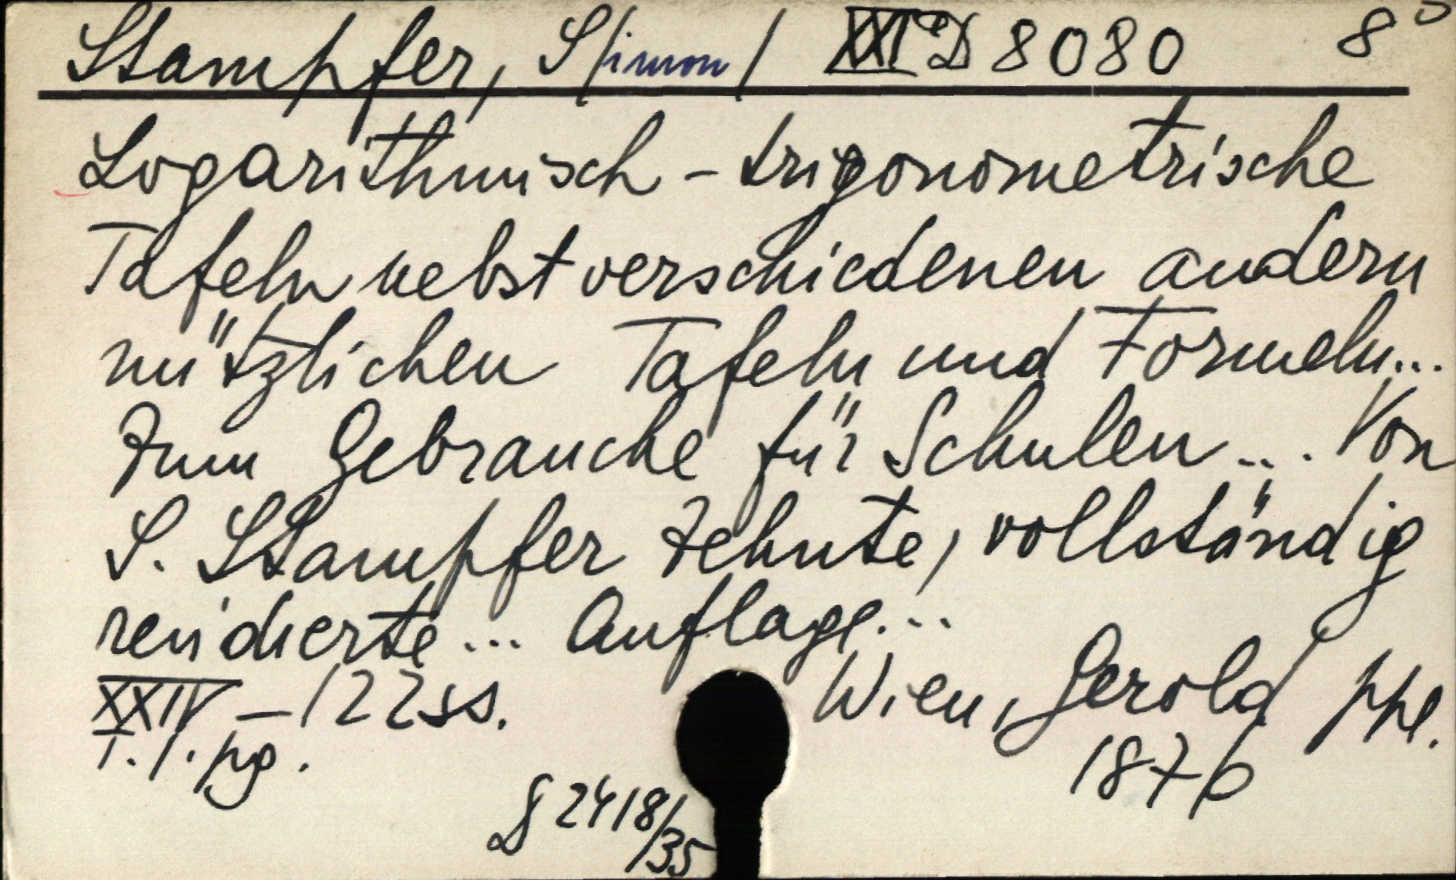 Stampfer, S/imon/ XXI D 8080 8°
Logarithmisch - trigonometrische
Tafeln nebst verschiedenen andern
nützlichen Tafeln und Formeln...
Zum Gebrauche für Schulen... Von
S. Stampfer Zehnte, vollständig
revidierte... Auflage...
XXIV - 122 ss. Wien, Gerold
1876
S 2418/35